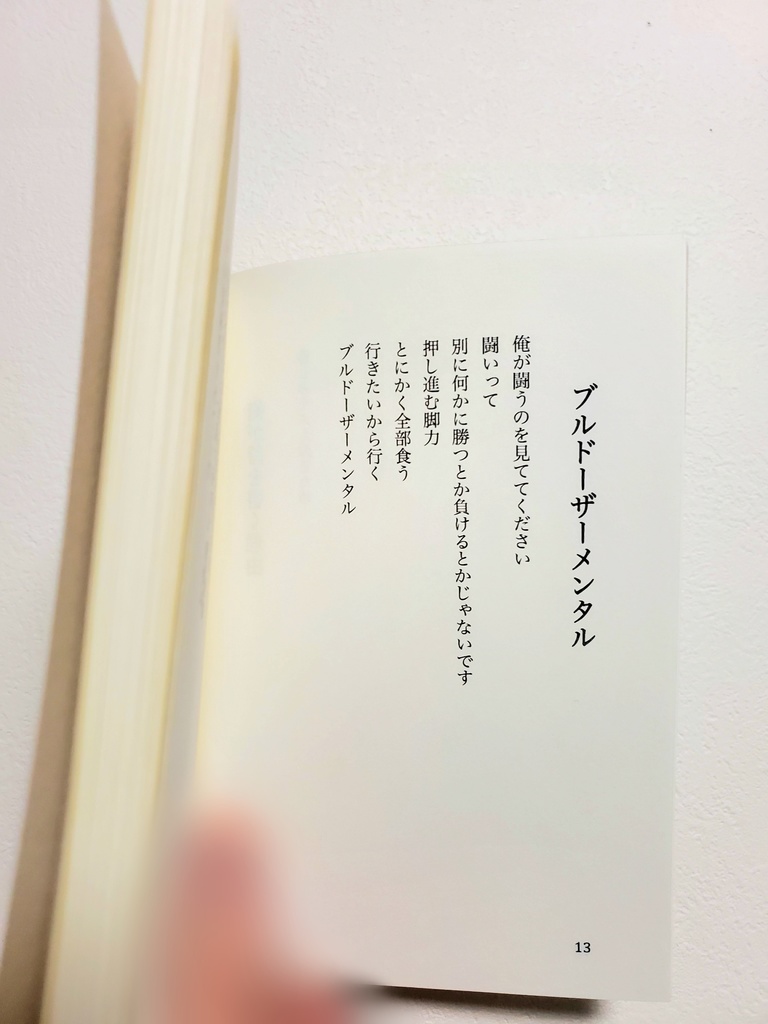 ブルドーザーメンタル
俺が闘うのを見ててください
闘いって
別に何かに勝つとか負けるとかじゃないです
押し進む脚力
とにかく全部食う
行きたいから行く
ブルドーザーメンタル
13